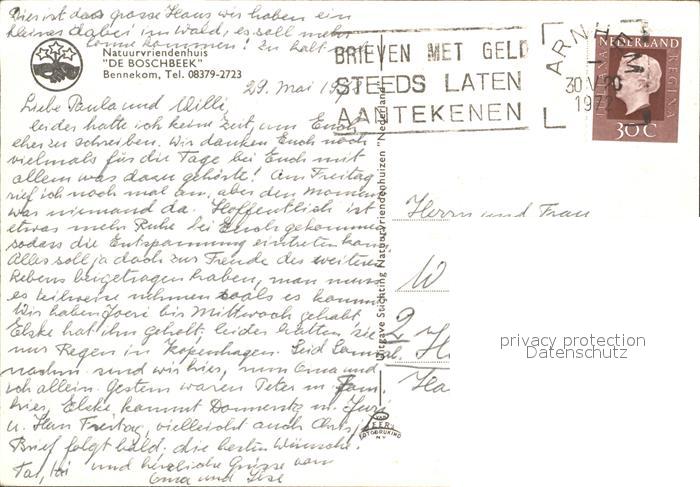 Hier ist das grosse Haus wir haben ein
kleines dabei im Wald, es soll mehr
Sonne kommen! Zu kalt
Natuurvriendenhuis
"DE BOSCHBEEK"
Bennekom, Tel. 08379-2723
29. Mai
Liebe Paula und Willi
leider hatte ich keine Zeit, um Euch
eher zu schreiben. Wir danken Euch noch
vielmals für die Tage bei Euch mit
allem was dazu gehörte! Am Freitag
rief ich noch mal an, aber den Moment
was niemand da. Hoffentlich ist
etwas mehr Ruhe bei Euch gekommen
sodass die Entspannung eintreten kann
Alles soll ja doch zur Freude des weiteren
Lebens beigetragen haben, man muss
es teilweise nehmen so als es kommt
Wir haben bis Mittwoch gehabt
Elske hat ihn geholt, leider hatten sie
nur Regen in Kopenhagen. Seid
sind wir hier, nun Oma und
ich allein. Gestern waren Peter u.
hier, Elske kommt Donnerstag u.
u. Han Freitag, vielleicht auch
Brief folgt bald. die besten Wünsche
und herzliche Grüsse von
Oma und Ilse
BRIEVEN MET GELD
STEEDS LATEN
AANTEKENEN
ARNHEM
1
30 V 20
1972
NEDERLAND
JULIANA REGINA
30 C
Uitgave Stichting Natuurvriendenhuizen "Nederland"
VAN
LEER'S
FOTODRUKIND
N.V.
Herrn und Frau
W
2
Ha
privacy protection
Datenschutz